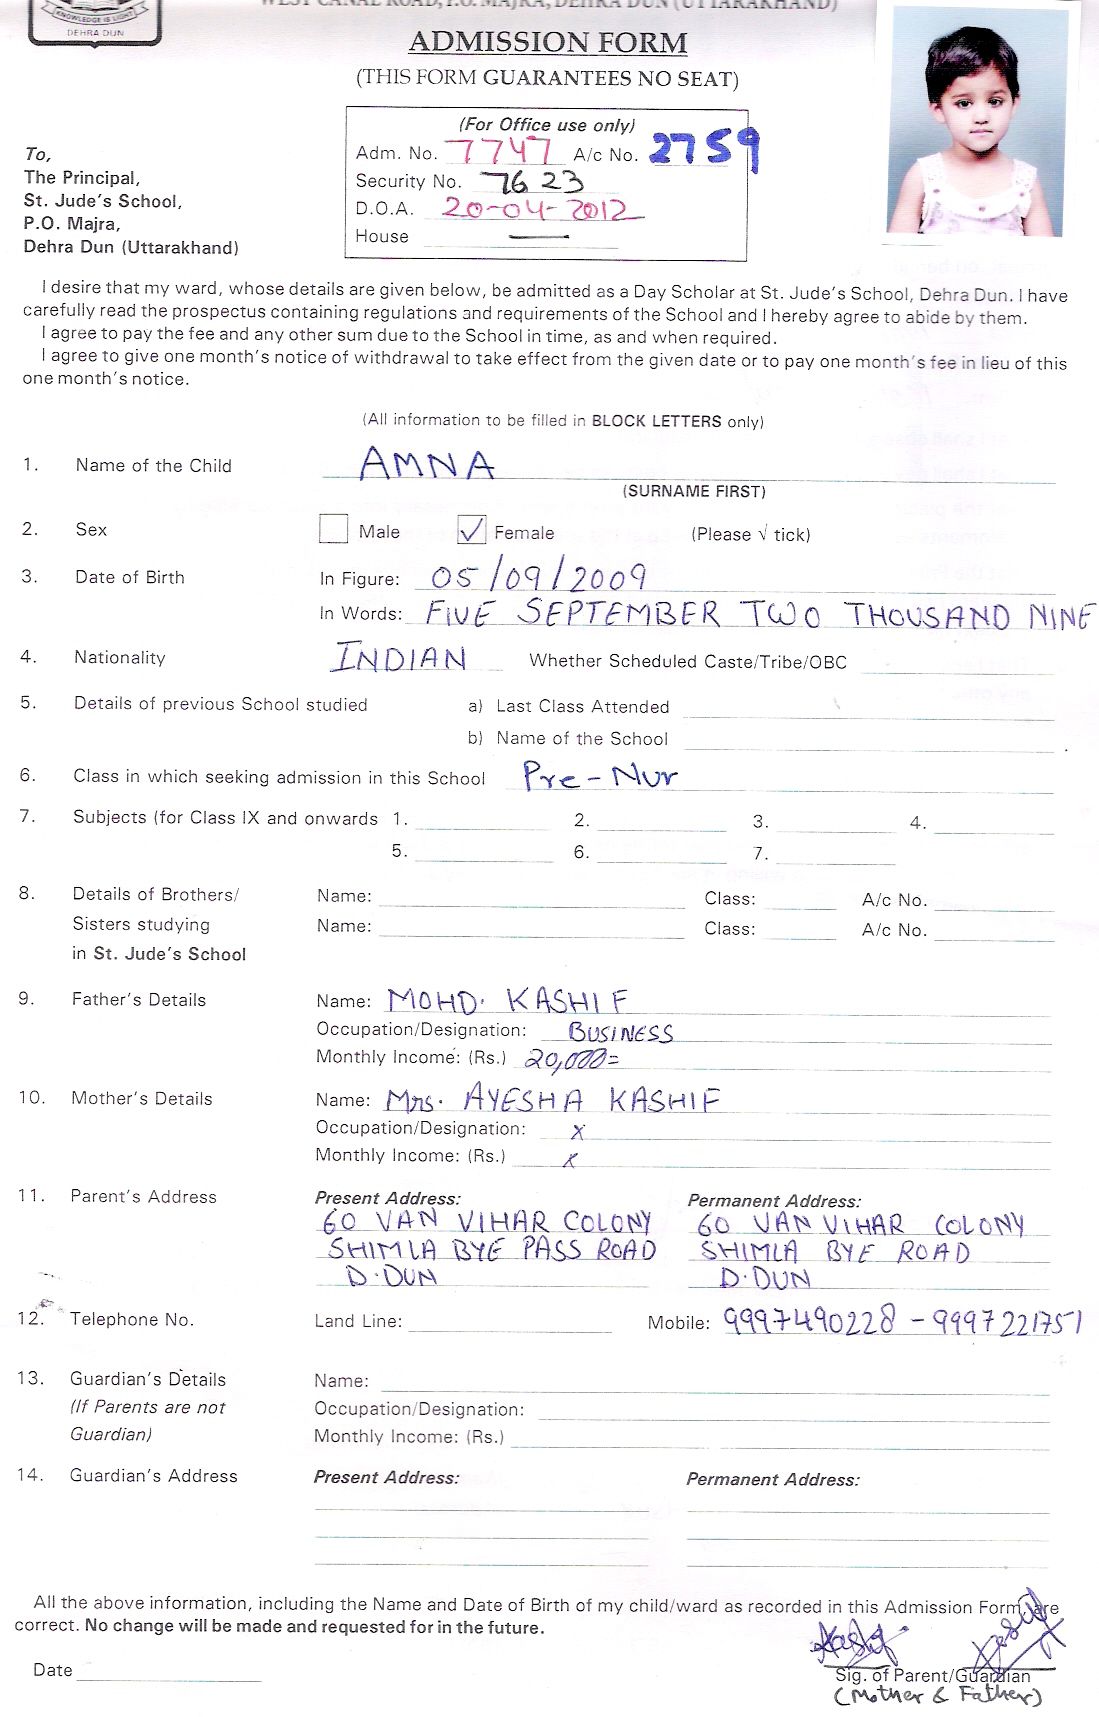 KNOWLEDGE IS LIGHT
DEHRA DUN
WEST CANAL ROAD, P.O. MAJRA, DEHRA DUN (UTTARAKHAND)
ADMISSION FORM
(THIS FORM GUARANTEES NO SEAT)
(For Office use only)
Adm. No. 7747 A/c No. 2759
Security No. 7623
D.O.A. 20-04-2012
House —
To,
The Principal,
St. Jude's School,
P.O. Majra,
Dehra Dun (Uttarakhand)
I desire that my ward, whose details are given below, be admitted as a Day Scholar at St. Jude's School, Dehra Dun. I have
carefully read the prospectus containing regulations and requirements of the School and I hereby agree to abide by them.
I agree to pay the fee and any other sum due to the School in time, as and when required.
I agree to give one month's notice of withdrawal to take effect from the given date or to pay one month's fee in lieu of this
one month's notice.
(All information to be filled in BLOCK LETTERS only)
1. Name of the Child AMNA
(SURNAME FIRST)
2. Sex Male ✓ Female (Please √ tick)
3. Date of Birth In Figure: 05/09/2009
In Words: FIVE SEPTEMBER TWO THOUSAND NINE
4. Nationality INDIAN Whether Scheduled Caste/Tribe/OBC
5. Details of previous School studied a) Last Class Attended
b) Name of the School
6. Class in which seeking admission in this School Pre-Nur
7. Subjects (for Class IX and onwards 1. 2. 3. 4.
5. 6. 7.
8. Details of Brothers/ Name: Class: A/c No.
Sisters studying Name: Class: A/c No.
in St. Jude's School
9. Father's Details Name: MOHD. KASHIF
Occupation/Designation: BUSINESS
Monthly Income: (Rs.) 20,000=
10. Mother's Details Name: Mrs. AYESHA KASHIF
Occupation/Designation: x
Monthly Income: (Rs.) x
11. Parent's Address Present Address: Permanent Address:
60 VAN VIHAR COLONY 60 VAN VIHAR COLONY
SHIMLA BYE PASS ROAD SHIMLA BYE ROAD
D.DUN D.DUN
12. Telephone No. Land Line: Mobile: 9997490228 - 9997221751
13. Guardian's Details Name:
(If Parents are not Occupation/Designation:
Guardian) Monthly Income: (Rs.)
14. Guardian's Address Present Address: Permanent Address:
All the above information, including the Name and Date of Birth of my child/ward as recorded in this Admission Form, are
correct. No change will be made and requested for in the future.
Date
Sig. of Parent/Guardian
(Mother & Father)